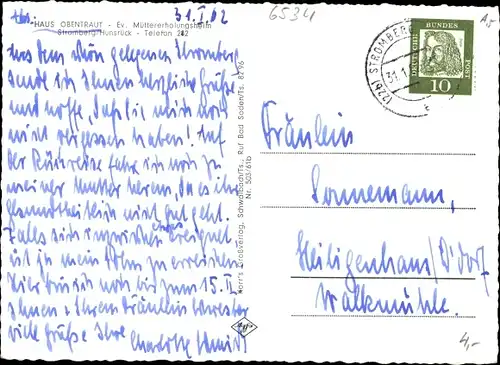 31.I.62
6534
HAUS OBENTRAUT - Ev. Müttererholungsheim
Stromberg/Hunsrück - Telefon 242
Aus dem schön gelegenen Stromberg
sende ich Ihnen herzliche Grüße
und hoffe, daß Sie mich noch
nicht vergessen haben! Auf
der Rückreise fahre ich noch zu
meiner Mutter heran, da es ihr
gesundheitlich nicht gut geht.
Falls sich inzwischen etwas ereignet
ist ja mein Mann zu erreichen.
Hier bin ich noch bis zum 15. II.
Ihnen u. Ihrem Fräulein Schwester
viele Grüße Ihre
Charlotte Schmidt
Horr's Großverlag, Schwalbach/Ts., Ruf Bad Soden/Ts. 8296
Nr. 503/61b
(22b) STROMBERG
31.1.
DEUTSCHE BUNDESPOST
10
Fräulein
Sonnemann,
Heiligenhaus/D'dorf
Walkmühle.
4,-